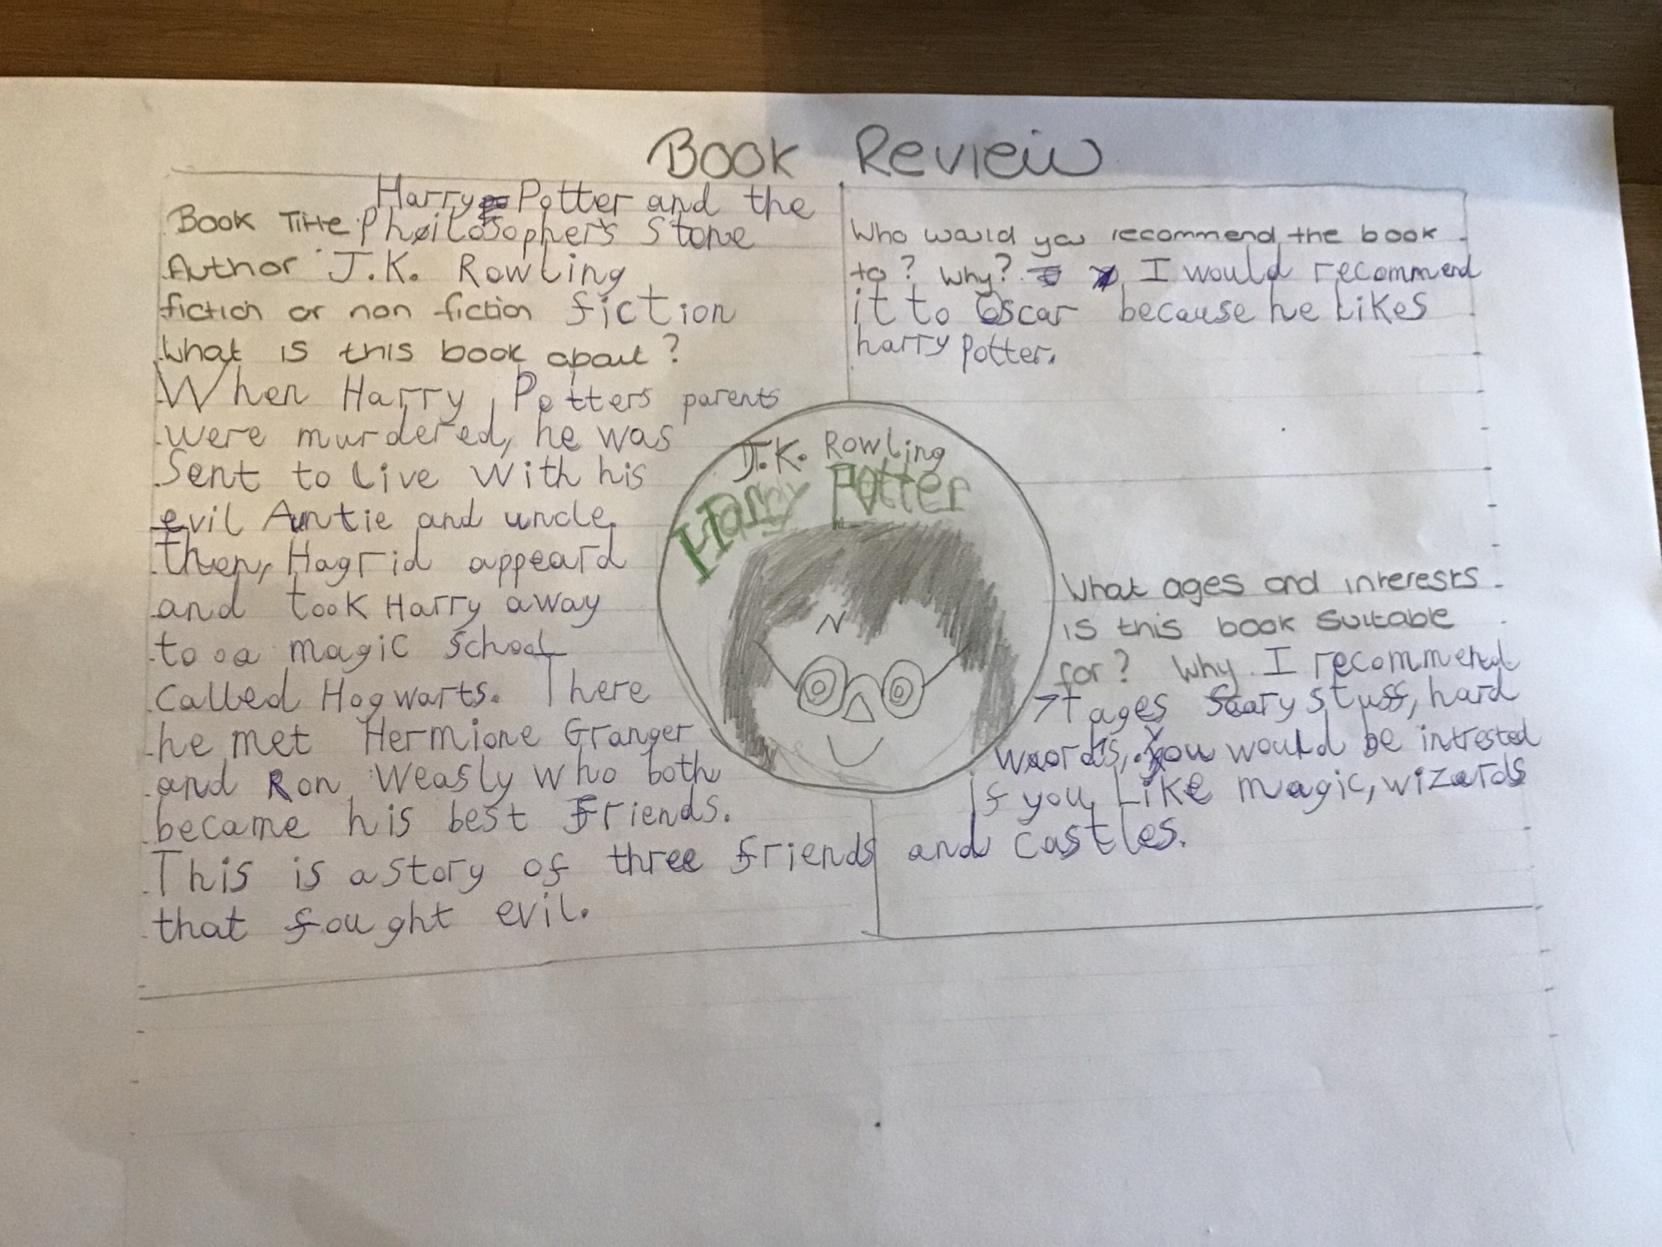 Book Review
Harry Potter and the
Book Title Philosopher's Stone
Author J.K. Rowling
fiction or non fiction fiction
What is this book about?
When Harry Potters parents
were murdered, he was
Sent to live with his
evil Auntie and uncle.
then, Hagrid appeard
and took Harry away
to a magic school
called Hogwarts. There
he met Hermione Granger
and Ron Weasly who both
became his best friends.
This is a story of three friends
that fought evil.
J.K. Rowling
Harry Potter
Who would you recommend the book
to? Why? I would recommend
it to Oscar because he likes
harry potter.
What ages and interests
is this book suitable
for? Why I recommend
7+ ages scary stuff, hard
words, you would be intrested
if you like magic, wizards
and castles.